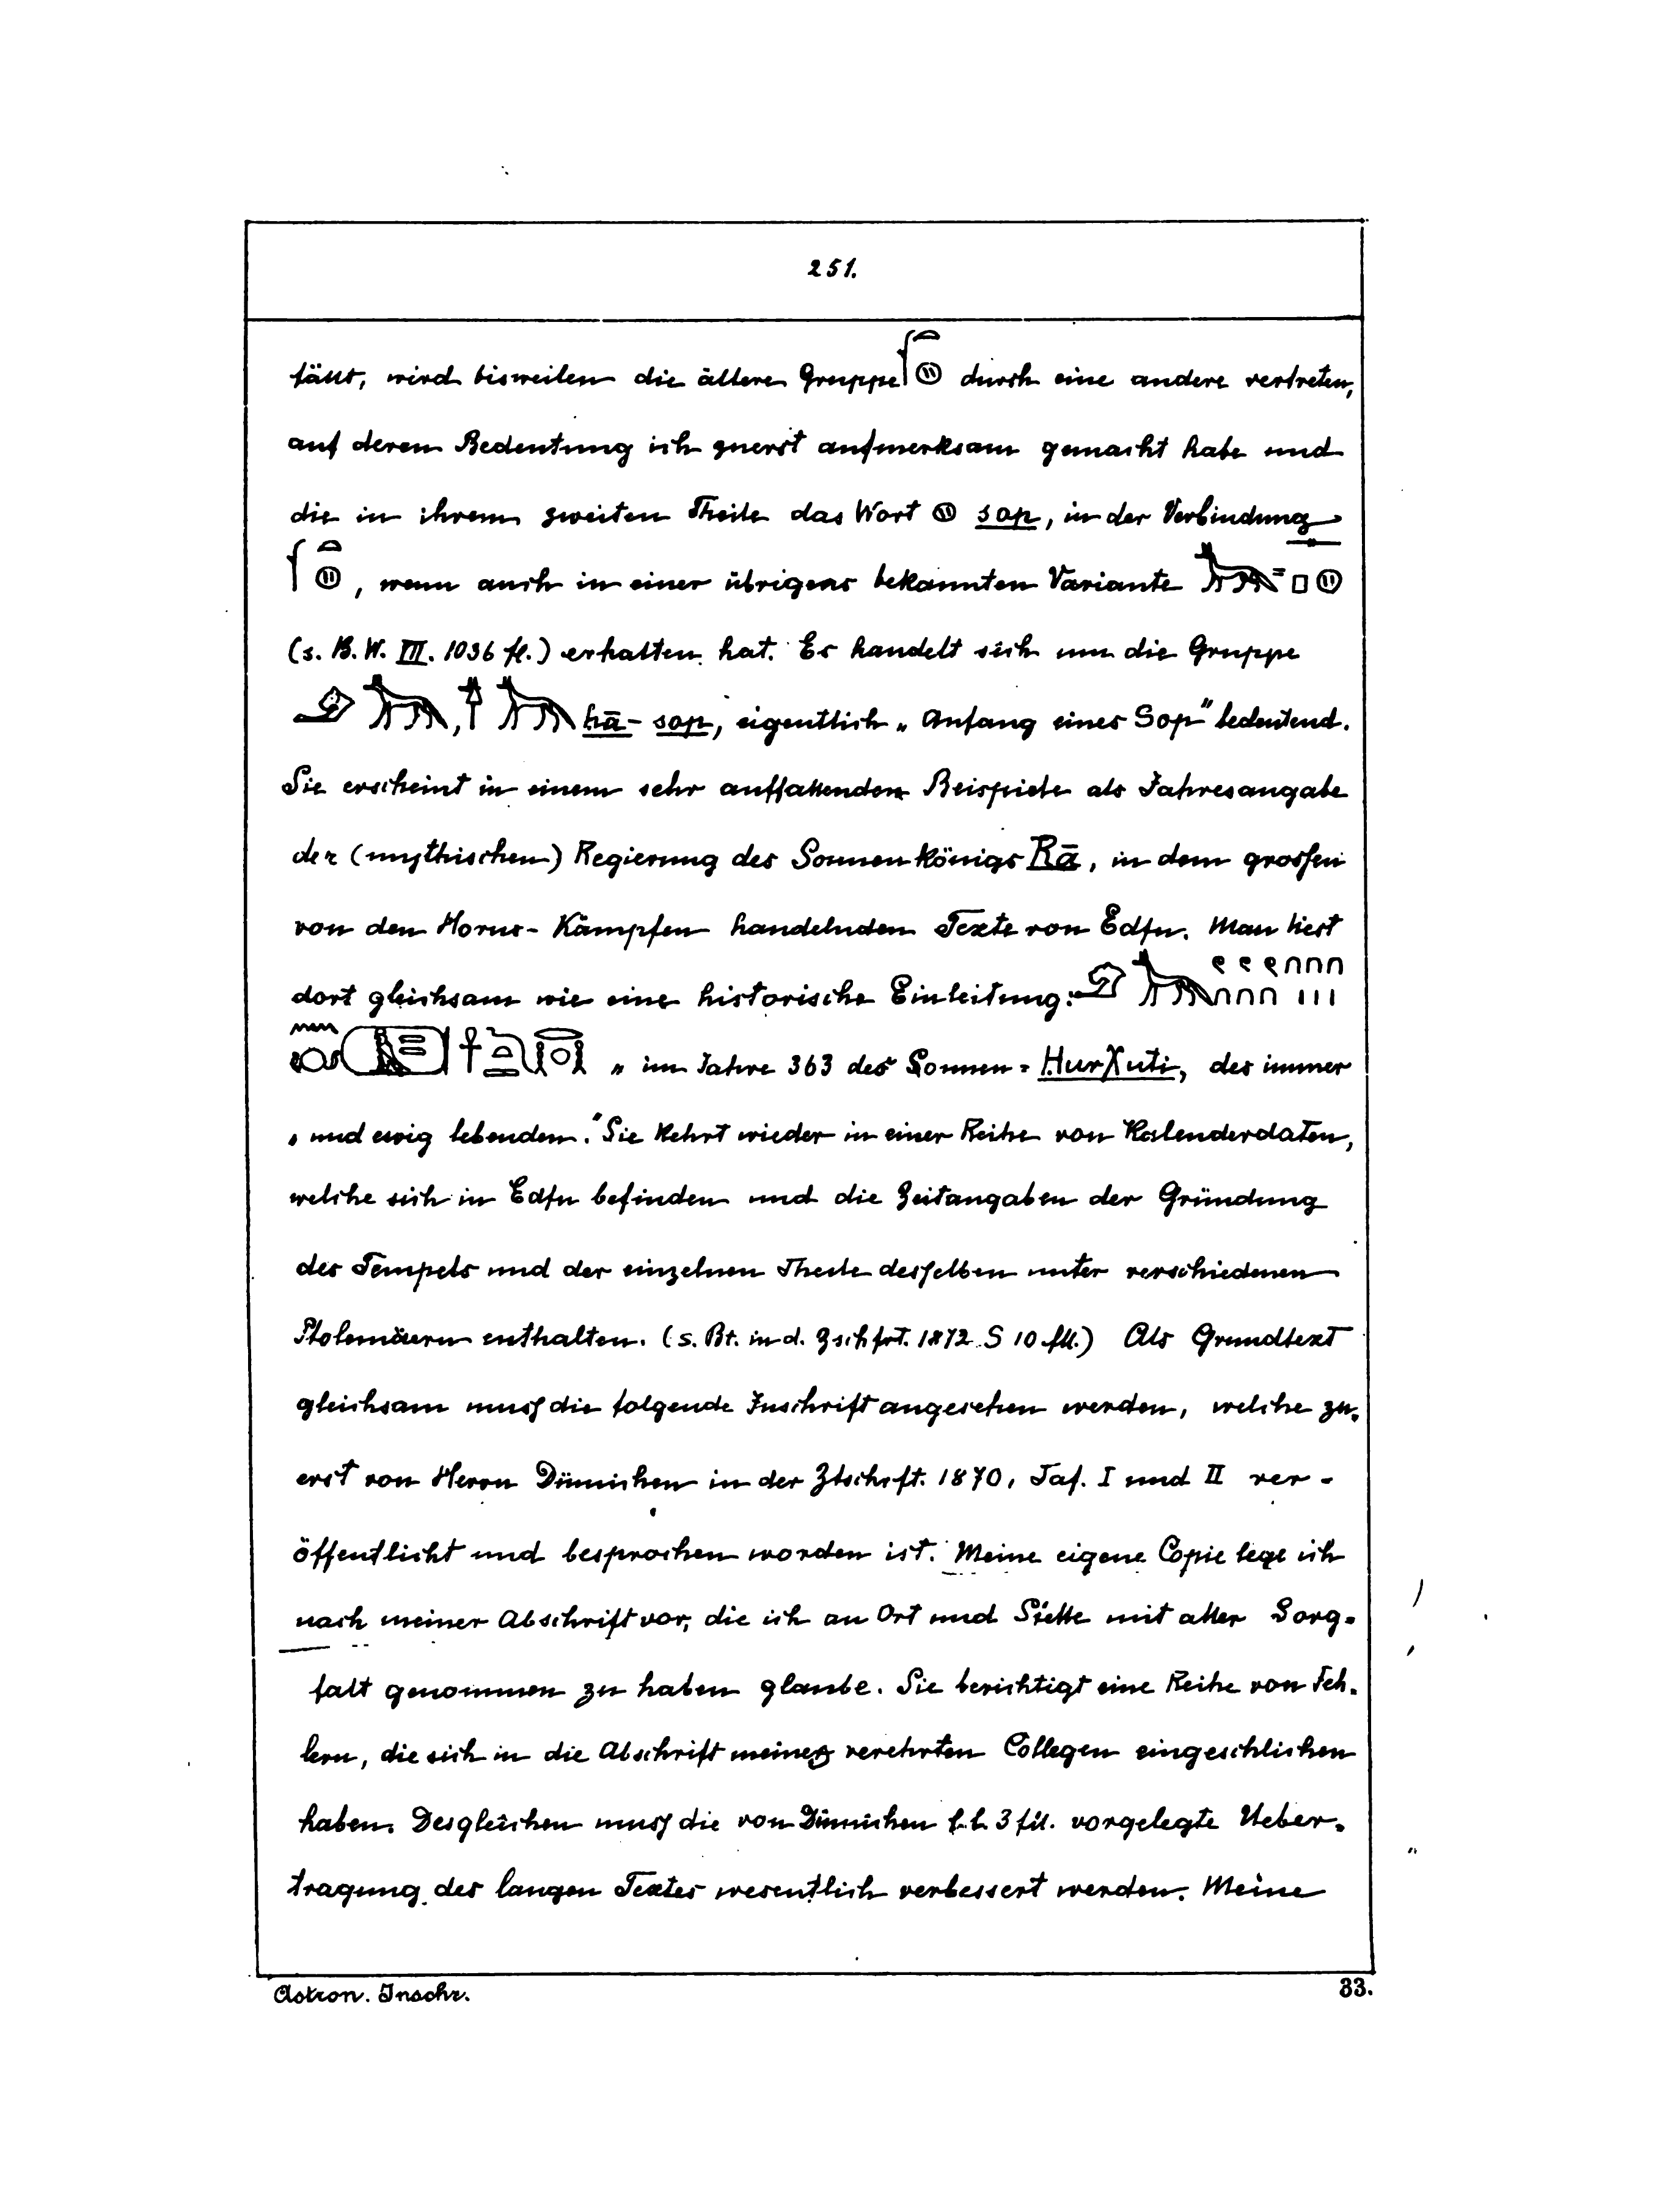 251.
fällt, wird bisweilen die ältere Gruppe durch eine andere vertreten,
auf deren Bedeutung ich zuerst aufmerksam gemacht habe und
die in ihrem zweiten Theile das Wort sop, in der Verbindung
, wenn auch in einer übrigens bekannten Variante
(s. B. W. III. 1036 fl.) erhalten hat. Es handelt sich um die Gruppe
, ḥā- sop, eigentlich „ Anfang eines Sop" bedeutend.
Sie erscheint in einem sehr auffallenden Beispiele als Jahresangabe
der (mythischen) Regierung des Sonnenkönigs Rā, in dem grossen
von den Horus- Kämpfen handelnden Texte von Edfu. Man liest
dort gleichsam wie eine historische Einleitung:
„ im Jahre 363 des Sonnen= HurXuti, des immer
„ und ewig lebenden." Sie kehrt wieder in einer Reihe von Kalenderdaten,
welche sich in Edfu befinden und die Zeitangaben der Gründung
des Tempels und der einzelnen Theile desselben unter verschiedenen
Ptolemäern enthalten. (s. Bt. in d. Zschfrt. 1872 S 10 fll.) Als Grundtext
gleichsam muss die folgende Inschrift angesehen werden, welche zu-
erst von Herrn Dümichen in der Ztschrft. 1870, Taf. I und II ver-
öffentlicht und besprochen worden ist. Meine eigene Copie lege ich
nach meiner Abschrift vor, die ich an Ort und Stelle mit aller Sorg-
falt genommen zu haben glaube. Sie berichtigt eine Reihe von Feh-
lern, die sich in die Abschrift meines verehrten Collegen eingeschlichen
haben. Desgleichen muss die von Dümichen l. l. 3 fll. vorgelegte Ueber-
tragung des langen Textes wesentlich verbessert werden. Meine
Astron. Inschr.
33.